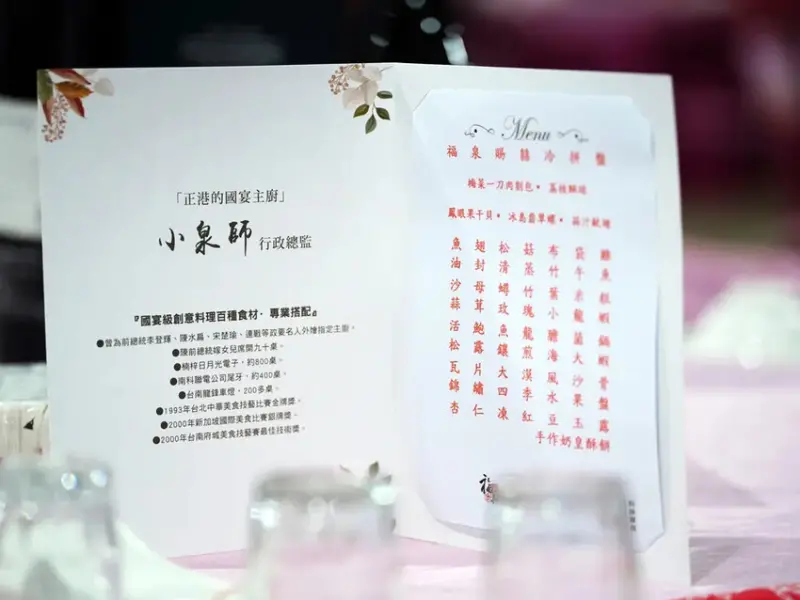 「正港的國宴主廚」
小泉師 行政總監
『國宴級創意料理百種食材·專業搭配』
●曾為前總統李登輝、陳水扁、宋楚瑜、連戰等政要名人外燴指定主廚。
●陳前總統嫁女兒席開九十桌。
●楠梓日月光電子，約800桌。
●南科聯電公司尾牙，約400桌。
●台南龍鋒車燈，200多桌。
●1993年台北中華美食技藝比賽金牌獎。
●2000年新加坡國際美食比賽銀牌獎。
●2000年台南府城美食技藝賽最佳技術獎。
Menu
福泉賜囍冷拼盤
梅菜一刀肉割包
鳳眼果干貝 冰島翡翠螺
魚翅松菇布袋雞
油封清蒸竹午魚
沙母蟳竹葉米糕
蒜茸玫瑰小龍蝦
活鮑魚龍膽菌鍋
松露鑲煎海大蝦
瓦片大漠風沙骨
錦繡四季水果盤
杏仁凍紅豆玉露
手作奶皇酥餅
福